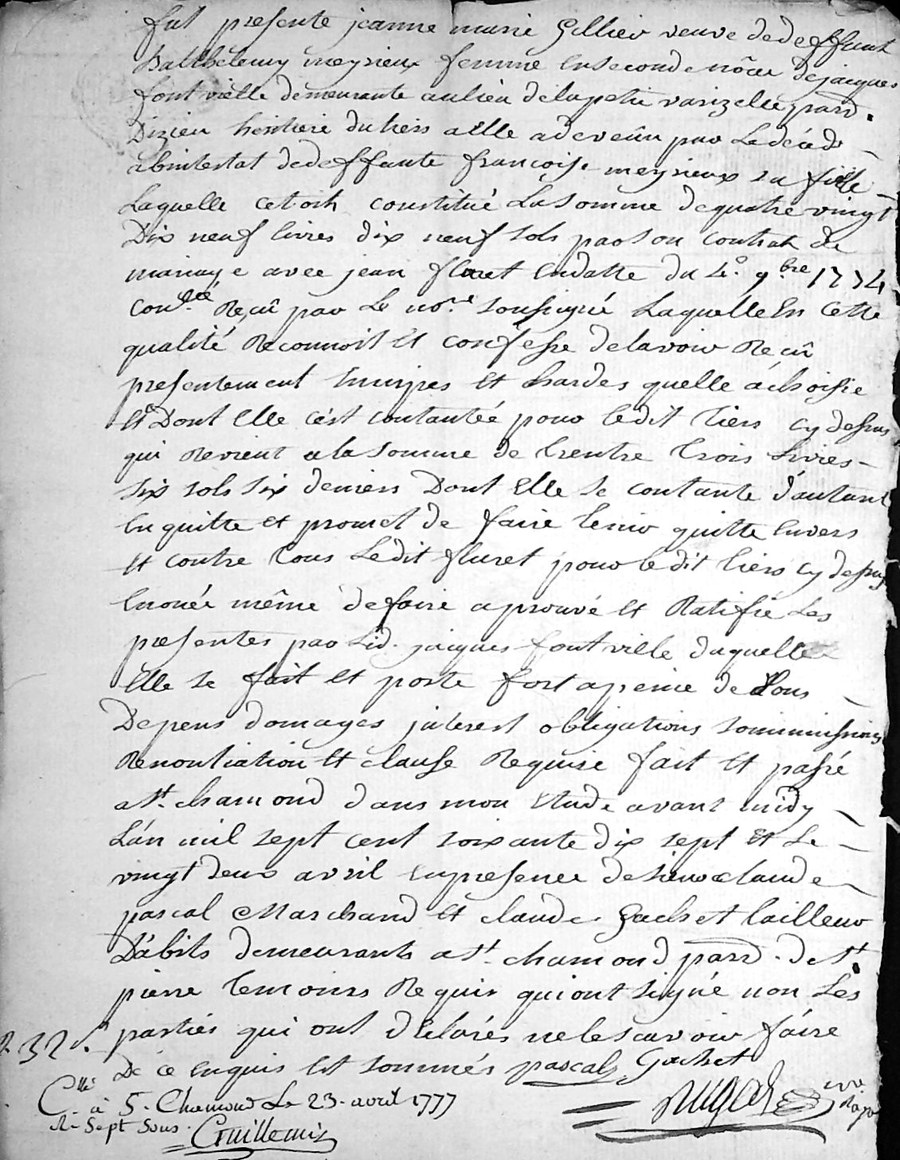 fut presente jeanne marie Gillier veuve de deffunt
Barthelemy meyrieux femme en seconde nôce de jacques
font vielle demeurante au lieu de la petite varizelle par.
Dizieu heritiere du tiers a elle advenûe par le décéds
abintestat de deffunte françoise meyrieux sa fille
Laquelle cetoit constitué La somme de quatre vingt
Dix neuf livres dix neuf sols par son contrat de
mariage avec jean fluret en datte du 4e. 9bre 1774
con.lé Reçû par Le nore. soussigné Laquelle En cette
qualité Reconnoit Et confesse de lavoir Reçû
presentement Et hardes quelle à choisie
Et Dont Elle c'est contantée pour ledit tiers cy dessus
qui Revient a la somme de trentre trois Livres
six sols six deniers Dont Elle se contante d'autant
En quitte et promet de faire tenir quitte Envers
Et contre tous Ledit fluret pour ledit tiers cy dessus
Enoncé même de faire aprouvé Et Ratifié Les
presentes par Led. jacques font ville duquelle
Elle se fait Et porte fort a peine de tous
Depens domages jnterest obligations soummissions
Renontiation Et clause Requise fait Et passé
a St. chamond dans mon Etude avant midy
L'an mil sept cent soixante dix sept Et Le
vingt deux avril En presence de sieur claude
pascal Marchand Et claude Gachet tailleur
D'abits demeurants a St. chamond par. de St.
pierre temoins Requis qui ont signé non Les
parties qui ont déclarés ne le savoir faire
De ce Enquis Et sommés pascal Gachet
R. 32.
Cllé à S. Chamond Le 23. avril 1777
R. Sept Sous.